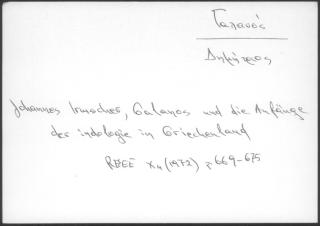 Γαλανός
Δημήτριος
Johannes Irmscher, Galanos und die Anfänge
der indologie in Griechenland
RESEE X4 (1972) σ 669-675